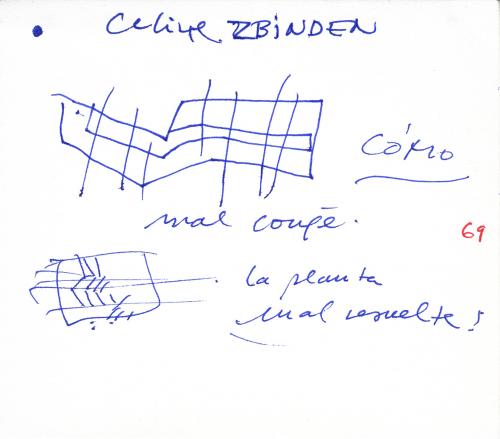 Celine ZBINDEN
CÓMO
mal coupé.
69
la planta
mal resuelta!